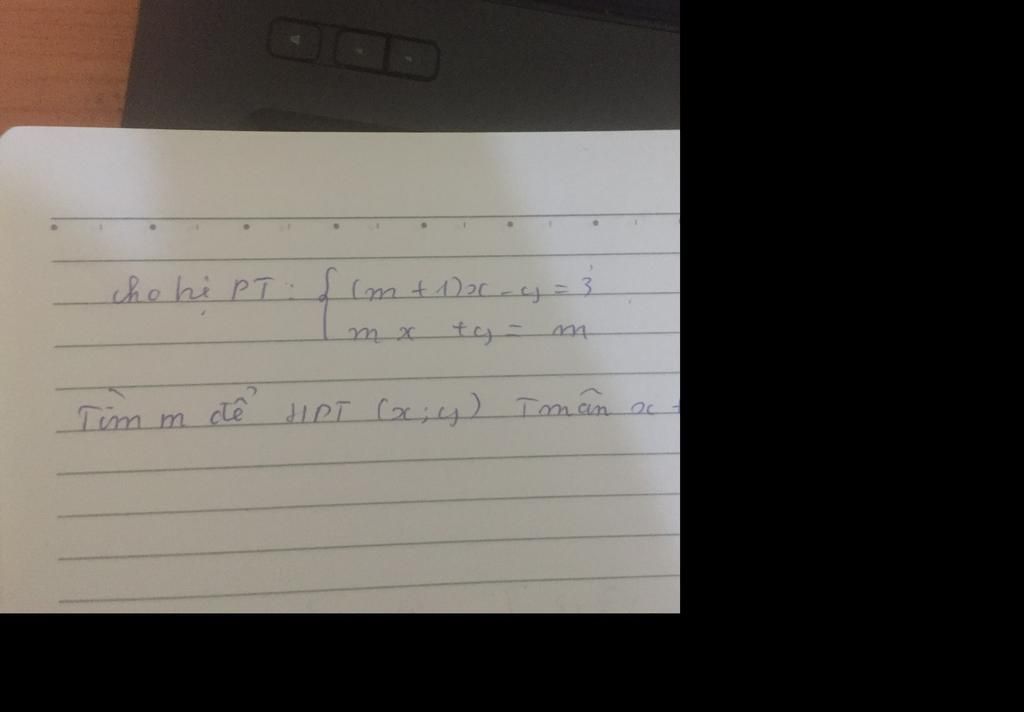 Cho hệ PT: { (m + 1)x - y = 3
m x + y = m
Tìm m để HPT (x; y) Tmãn x +